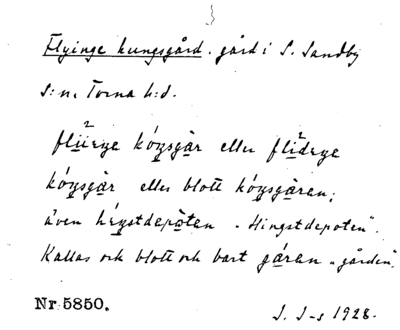 Flyinge kungsgård. gård i S. Sandby
s:n, Torna h:d.
flǜryə kóŋsgàr eller flìdryə
kóŋsgàr eller blott kóŋsgàrən;
även héŋstdepòtən "Hingstdepoten".
Kallas och blott och bart gárən "gården".
Nr 5850.
J. I-s 1928.